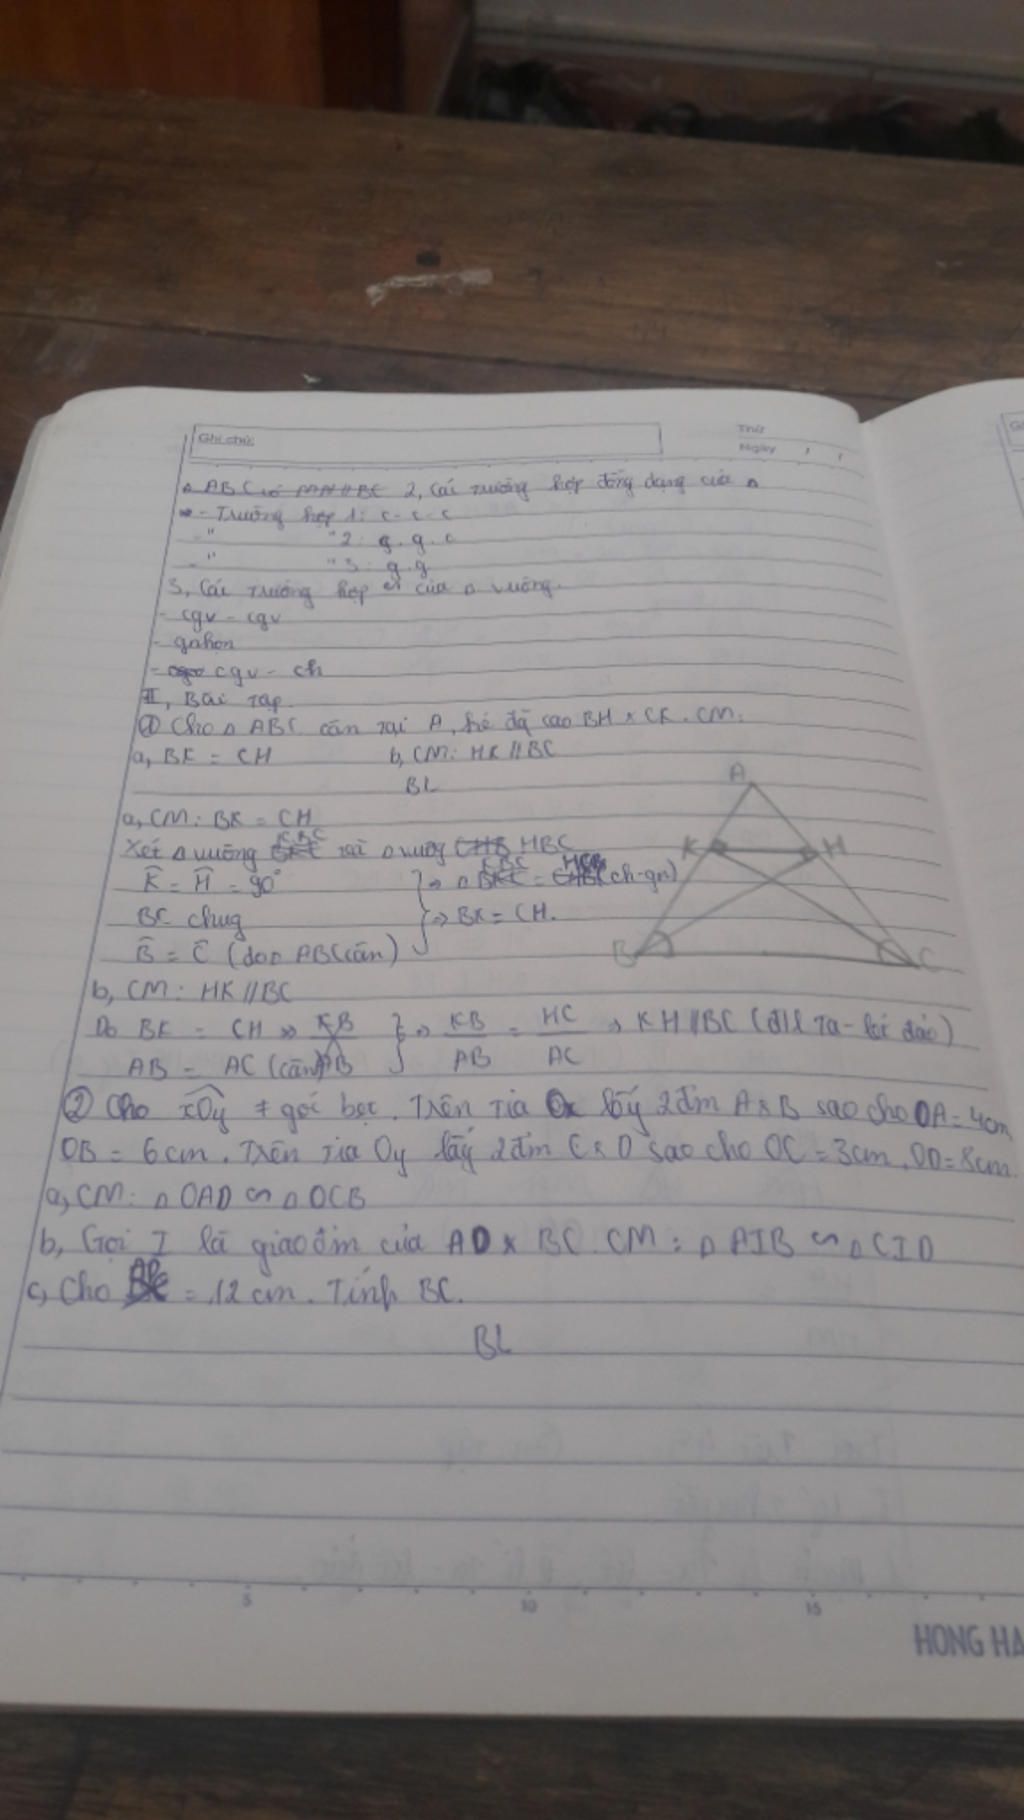 Ghi chú:
Thứ
Ngày / /
Δ ABC có MN//BC 2, Các trường hợp đồng dạng của Δ
- Trường hợp 1: c-c-c
- " "2: g.g.c
- " "3: g.g
3, Các trường hợp của Δ vuông.
- cgv - cgv
- gnhọn
- cgv - ch
II, Bài tập.
① Cho Δ ABC cân tại A, kẻ đg cao BH x CK. CM:
a, BK = CH b, CM: HK // BC
BL
a, CM: BK = CH
Xét Δ vuông KBC và Δ vuôg HBC
K̂ = Ĥ = 90°
BC chug
B̂ = Ĉ (do Δ ABC cân)
⇒ Δ KBC = HCB (ch-gn)
⇒ BK = CH.
A
K H
B C
b, CM: HK // BC
Do BK = CH ⇒ KB/AB = HC/AC ⇒ KH // BC (đlí Ta-lét đảo)
AB = AC (cân)
② Cho xOy ≠ góc bẹt. Trên tia Ox lấy 2 đm A x B sao cho OA = 4cm
OB = 6cm. Trên tia Oy lấy 2 đm C x D sao cho OC = 3cm, OD = 8cm.
a, CM: Δ OAD ∽ Δ OCB
b, Gọi I là giao đm của AD x BC. CM: Δ AIB ∽ Δ CID
c, Cho AD = 12 cm. Tính BC.
BL
5 10 15
HONG HA